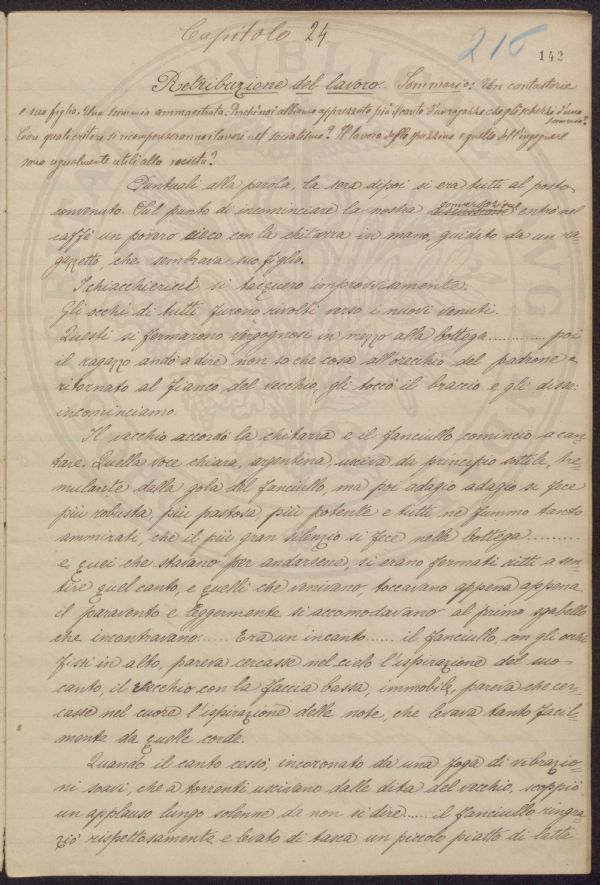 Capitolo 24
216
142
Retribuzione del lavoro. Sommario: Un cantastorie
e suo figlio. Una scimmia ammaestrata. Perché noi abbiamo apprezzato più il canto d'un ragazzo che gli scherzi d'una
scimmia?
Con quali criteri si ricompenseranno i lavori nel socialismo? Il lavoro dello spazzino e quello dell'ingegnere
sono ugualmente utili alla società?
Puntuali alla parola, la sera dipoi si era tutti al posto
convenuto. Sul punto di incominciare la nostra conversazione entrò nel
caffè un povero cieco con la chitarra in mano, guidato da un ra-
gazzetto, che sembrava suo figlio.
I chiacchiericci si tacquero improvvisamente.
Gli occhi di tutti furono rivolti verso i nuovi venuti.
Questi si fermarono vergognosi in mezzo alla bottega ............ poi
il ragazzo andò a dire non so che cosa all'orecchio del padrone e,
ritornato al fianco del vecchio, gli toccò il braccio e gli disse:
incominciamo.
Il vecchio accordò la chitarra e il fanciullo cominciò a can-
tare. Quella voce chiara, argentina, usciva da principio sottile, tre-
mulante dalla gola del fanciullo, ma poi adagio adagio si fece
più robusta, più pastosa, più potente e tutti ne fummo tanto
ammirati, che il più gran silenzio si fece nella bottega ..........
e quei che stavano per andarsene, si erano fermati ritti a sen-
tire quel canto, e quelli che venivano, toccavano appena appena
il paravento e leggermente si accomodavano al primo sgabello
che incontravano:...... Era un incanto ...... il fanciullo, con gli occhi
fissi in alto, pareva cercasse nel cielo l'ispirazione del suo
canto, il vecchio con la faccia bassa, immobile, pareva che cer-
casse nel cuore l'ispirazione delle note, che levava tanto facil-
mente da quelle corde.
Quando il canto cessò, incoronato da una foga di vibrazio-
ni soavi, che a torrenti uscivano dalle dita del vecchio, scoppiò
un applauso lungo solenne da non si dire ..... il fanciullo ringra-
ziò rispettosamente e levato di tasca un piccolo piatto di latta